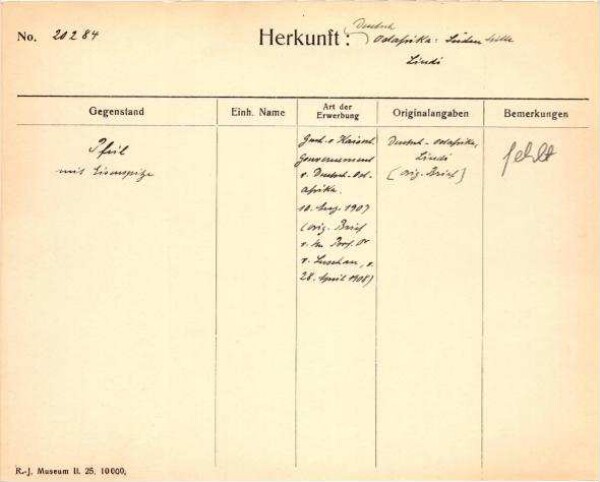 No. 20284
Herkunft: Deutsch
Ostafrika. Süden
Lindi
Gegenstand
Einh. Name
Art der
Erwerbung
Originalangaben
Bemerkungen
Pfeil
mit Eisenspitze
Gesch. v. Kaiserl.
Gouvernement
v. Deutsch-Ost-
afrika.
10. Aug. 1907
(Orig. Brief
v. Prof. Dr
v. Luschan, v.
28. April 1908)
Deutsch-Ostafrika,
Lindi
(Orig. Brief)
fehlt
R.-J. Museum II. 25. 10000.